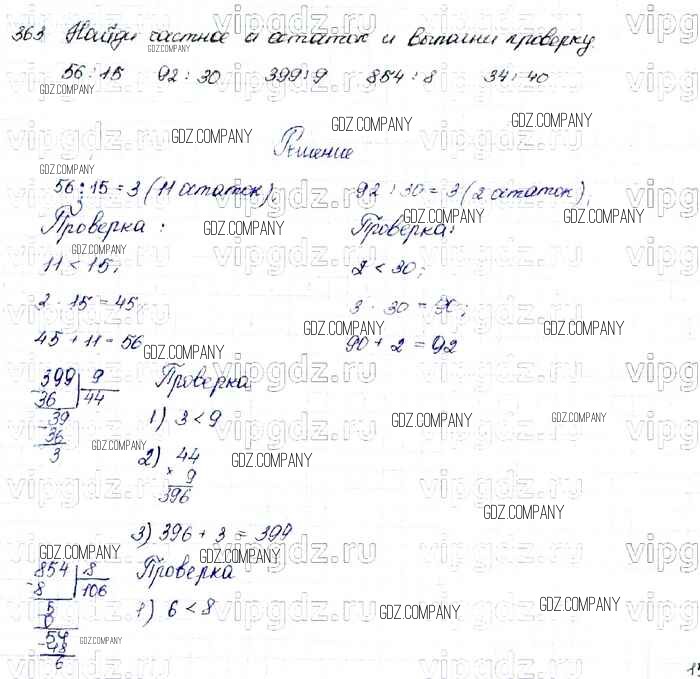 363 Найди частное и остаток и выполни проверку.
56 : 15 92 : 30 399 : 9 854 : 8 34 : 40
Решение
56 : 15 = 3 (11 остаток);
Проверка:
11 < 15;
2 · 15 = 45;
45 + 11 = 56
92 : 30 = 3 (2 остаток);
Проверка:
2 < 30;
3 · 30 = 90;
90 + 2 = 92
399 | 9
36 | 44
- 39
36
3
Проверка
1) 3 < 9
2) 44
× 9
396
3) 396 + 3 = 399
854 | 8
- 8 | 106
5
0
54
- 48
6
Проверка
1) 6 < 8
vipgdz.ru
GDZ.COMPANY